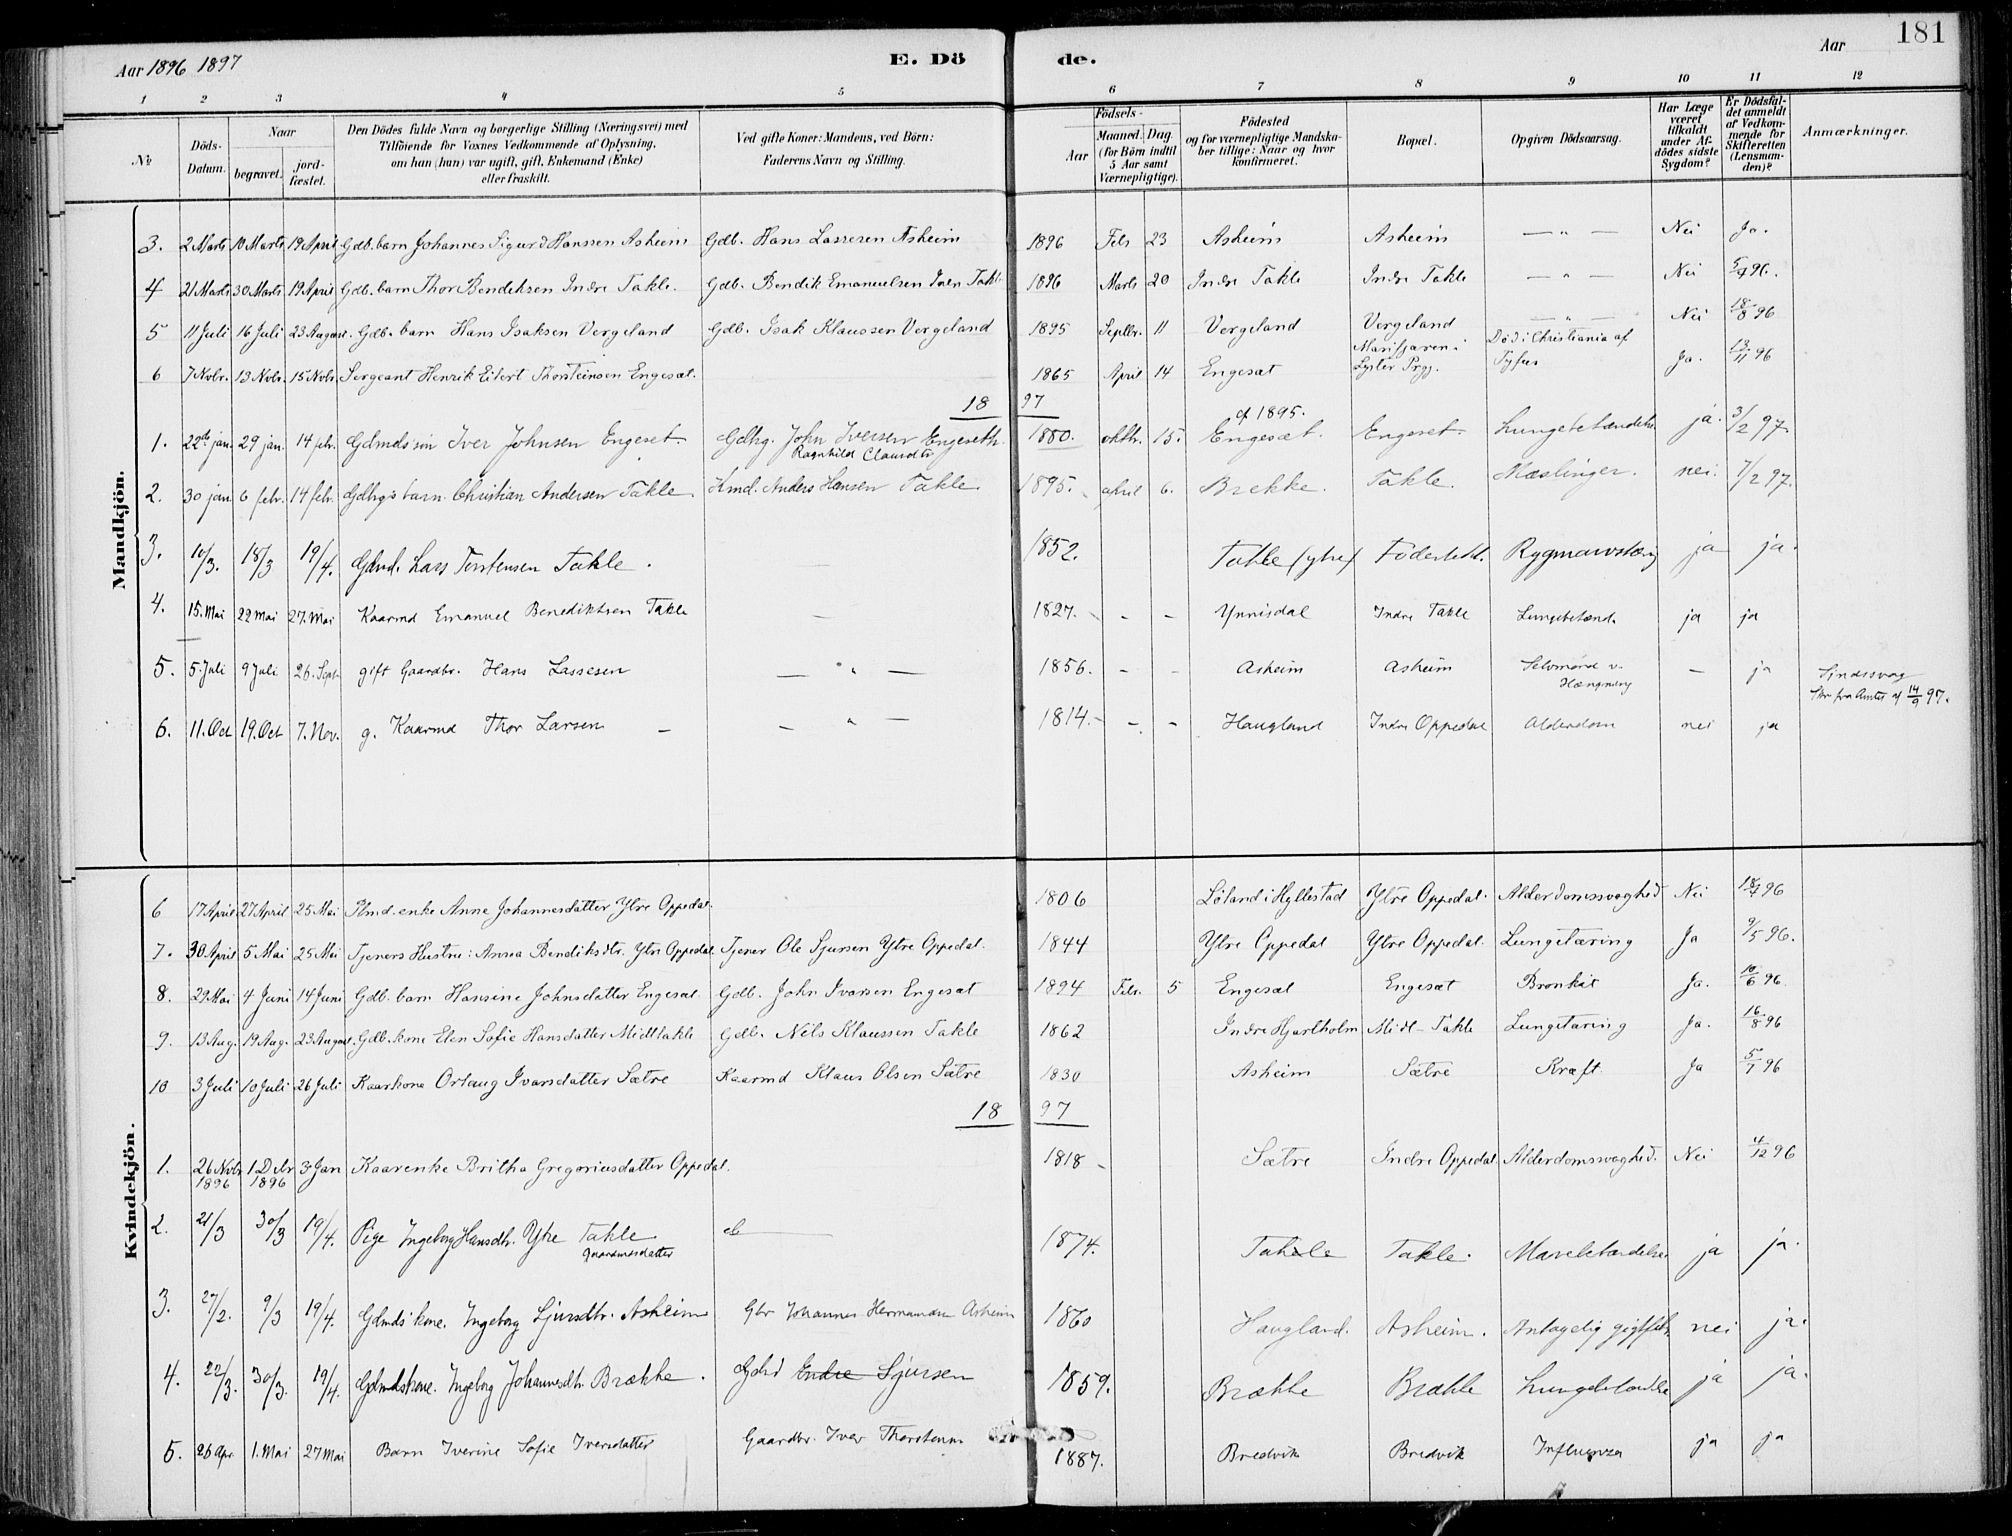 Aar 1896 1897 E. Dö de. Aar 181
1 2 3 4 5 6 7 8 9 10 11 12
№ Döds-Datum. Naar begravet. jord-fæstet. Den Dödes fulde Navn og borgerlige Stilling (Næringsvei) med Tilföiende for Voxnes Vedkommende af Oplysning, om han (hun) var ugift, gift, Enkemand (Enke) eller fraskilt. Ved gifte Koner: Mandens, ved Börn: Faderens Navn og Stilling. Födsels- Aar Maaned. Dag. (for Börn indtil 5 Aar samt Værnepligtige). Födested og for værnepligtige Mandskaber tillige: Naar og hvor konfirmeret. Bopæl. Opgiven Dödsaarsag. Har Læge været tilkaldt under Afdödes sidste Sygdom? Er Dödsfaldet anmeldt af Vedkommende for Skifteretten (Lensmanden)? Anmærkninger.
Mandkjön.
3. 2 Marts 10 Marts 19 April Gdb. barn Johannes Sigurd Hanssen Asheim Gdb. Hans Lassesen Asheim 1896 Febr 23 Asheim Asheim — " — Nei Ja.
4 21 Marts 30 Marts 19 April Gdb. barn Thor Bendiksen Indre Takle. Gdb. Bendik Emanuelsen Indre Takle 1896 Marts 20 Indre Takle Indre Takle — " — Nei 5/4 96.
5 11 Juli 16 Juli 23 August. Gdb. barn Hans Isaksen Vergeland Gdb. Isak Klaussen Vergeland 1895 Septbr. 11 Vergeland Vergeland — " — Nei 18/8 96
6 7 Nvbr. 13 Nvbr. 15 Nvbr. Sergeant Henrik Eilert Thorsteinsen Engesæt. 1865 April 14 Engesæt Marifjæren i Lyster Prgj. Död i Christiania af Tyfus Ja. 13/11 96
18 97
1. 22de jan. 29 jan. 14 febr. Gdmds søn Iver Johnsen Engeset. Gdbrg. John Iversen Engeseth. Ragnhild Clausdtr 1880. oktbr. 15. Engesæt. Engeset. Lungebetændelse ja. 3/2 97.
2. 30 jan 6 febr. 14 febr. Gdbrg's barn Christian Andersen Takle. Kmd. Anders Hansen Takle 1895. april 6. Brekke. Takle. Mæslinger. nei. 7/2 97.
3. 10/3. 18/3 19/4. Gdmd. Lars Torstensen Takle. — 1852. Takle (ytre) Födested. Rygmarvstæring ja ja.
4. 15. Mai 22 Mai 27. Mai Kaarmd Emanuel Benediktsen Takle — 1827. - - Ynnisdal Indre Takle Lungebetænd. ja ja
5. 5. Juli 9 Juli 26. Sept. gift Gaardbr. Hans Lassesen — " — 1856. - - Asheim Asheim Selvmord v. Hængning — ja Sindssvag Skr fra Amtet af 14/9 97.
6. 11. Oct 19. Oct 7. Nov. g. Kaarmd Thor Larsen — — " — 1814. - - Haugland Indre Oppedal Alderdom nei ja
Kvindekjön.
6 17 April 27 April 25 Mai Plmd. enke Anne Johannesdatter Ytre Oppedal. 1806 Löland i Hyllestad Ytre Oppedal. Alderdomssvaghed Nei 18/4 96
7. 30 April 5 Mai 25 Mai Tjeners Hustru: Anna Bendiksdtr. Ytre Oppedal. Tjener Ole Sjursen Ytre Oppedal. 1844 Ytre Oppedal Ytre Oppedal. Lungetæring Ja 9/5 96.
8. 29. Mai 4 Juni 14 Juni Gdb. barn Hansine Johnsdatter Engesæt. Gdb. John Ivarsen Engesæt 1894 Febr. 5 Engesæt Engesæt Bronkit Ja. 10/6 96.
9. 13 Aug. 19 Aug. 23 August. Gdb. kone Elen Sofie Hansdatter Midttakle Gdb. Nils Klaussen Takle 1862 Indre Hjartholm Midt-Takle Lungetæring Ja. 16/8 96
10 3 Juli 10 Juli 26 Juli Kaarkona Orlaug Ivarsdatter Sætre Kaarmd Klaus Olsen Sætre 1830 Asheim Sætre Kræft Ja 5/7 96
18 97
1. 26 Nvbr 1896 1 Dcbr 1896 3 Jan Kaarenke Britha Gregoriusdatter Oppedal. 1818 Sætre Indre Oppedal. Alderdomssvaghed. Nei 4/12 96
2. 21/3 30/3 19/4. Pige Ingeborg Hansdtr. Ytre Takle Gaardmdsdatter 1874. Takle Takle. Mavebetændelse ja ja.
3. 27/2. 9/3 19/4. Gdmds kone. Ingeborg Sjursdtr. Asheim Gbr Johannes Hermansen Asheim 1860 Haugland. Asheim. Antagelig gigtfeber nei ja.
4. 22/3. 30/3. 19/4. Gdmdskone. Ingeborg Johannesdtr Brække. Gbrd Endre Sjursen 1859. Brække Brække Lungebetændelse ja ja.
5. 26 Apr. 1. Mai 27 Mai Barn Iverine Sofie Iversdatter Gaardbr. Iver Thorstensen 1887. Bredvik Bredvik Influenza ja ja